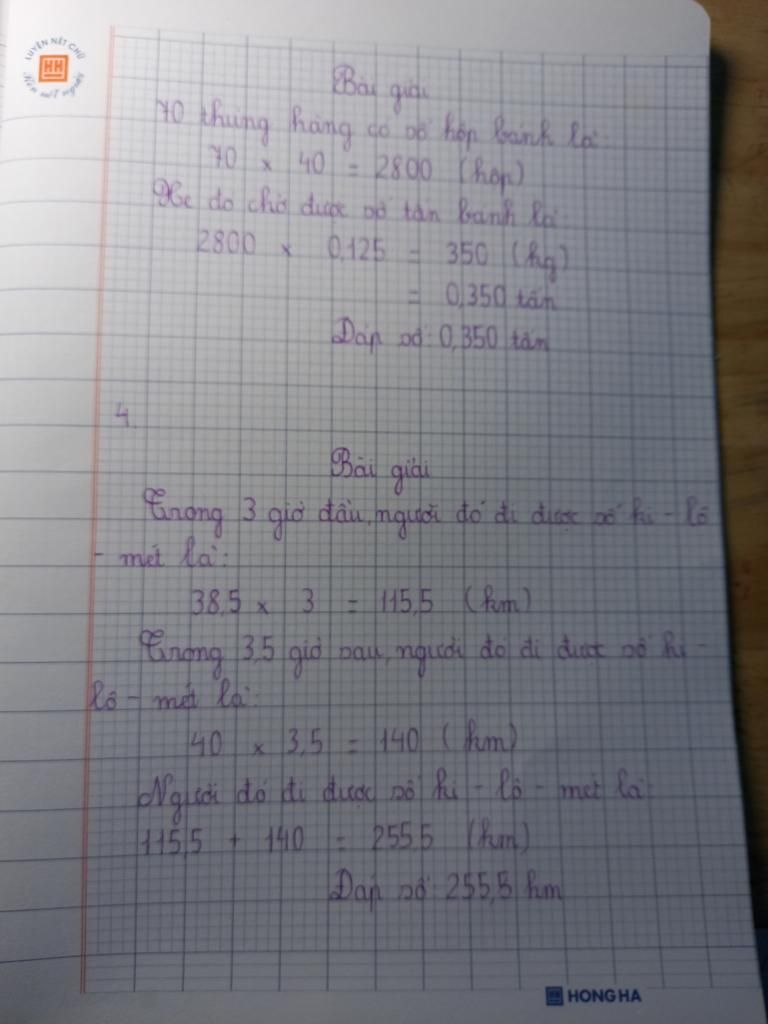 LUYỆN NÉT CHỮ
HH
Rèn nết người
Bài giải
70 thùng hàng có số hộp bánh là:
70 x 40 = 2800 (hộp)
Xe đó chở được số tấn bánh là:
2800 x 0,125 = 350 (kg)
= 0,350 tấn
Đáp số: 0,350 tấn
4.
Bài giải
Trong 3 giờ đầu, người đó đi được số ki - lô
- mét là:
38,5 x 3 = 115,5 (km)
Trong 3,5 giờ sau, người đó đi được số ki -
lô - mét là:
40 x 3,5 = 140 (km)
Người đó đi được số ki - lô - mét là:
115,5 + 140 = 255,5 (km)
Đáp số: 255,5 km
HONG HA